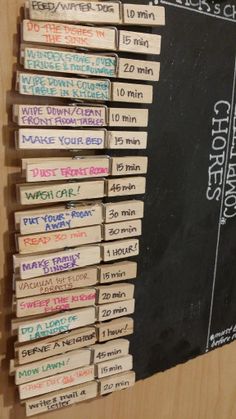 FEED/WATER DOG 10 min
DO THE DISHES IN
THE SINK 15 min
WINDEX STOVE, OVEN
FRIDGE & MICROWAVE 20 min
WIPE DOWN COUNTER
& TABLE IN KITCHEN 10 min
WIPE DOWN/CLEAN
FRONT ROOM TABLES 10 min
MAKE YOUR BED 15 min
DUST FRONT ROOM 15 min
WASH CAR! 45 min
PUT YOUR "ROOM"
AWAY 30 min
READ 30 min 30 min
MAKE FAMILY
DINNER 1 HOUR!
VACUUM 1st FLOOR
CARPETS 15 min
SWEEP THE KITCHEN
FLOOR 20 min
DO A LOAD OF
LAUNDRY 20 min
SERVE A NEIGHBOR 1 hour!
MOW LAWN! 45 min
TAKE OUT TRASH 15 min
write & mail a
letter 20 min
CHORES